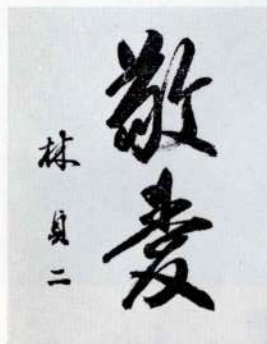 敬愛
林貞二